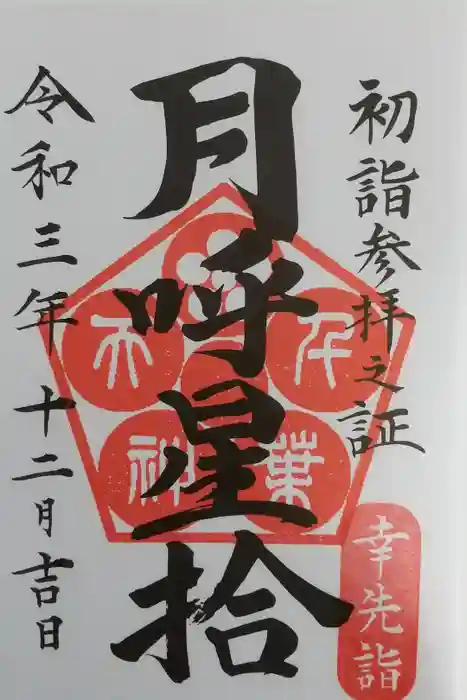 初詣参拝之証
月呼星拾
令和三年十二月吉日
千葉
天神
幸先詣